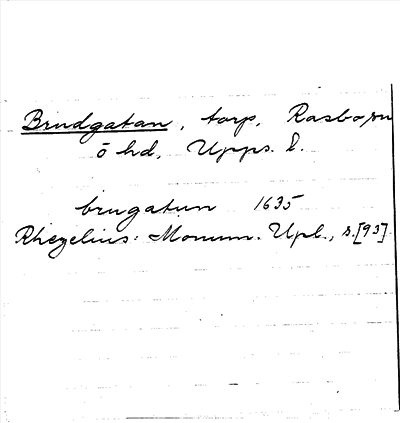 Brudgatan, torp, Rasbo sn
ö hd, Upps. l.
brugatun 1635
Rhezelius: Monum. Upl., s. [93]